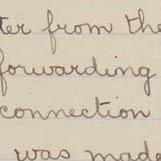 ter from the
forwarding
connection
was made